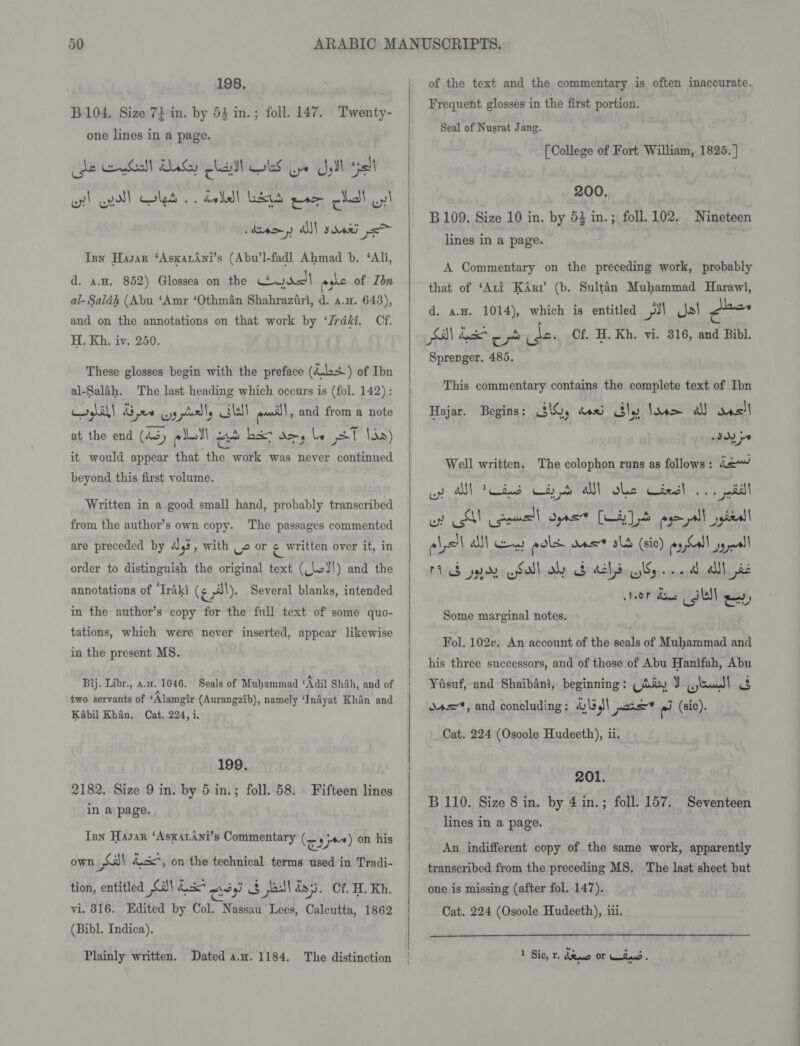 50 ARABIC MANUSCRIPTS.
198.
B 104. Size 7¼ in. by 5¼ in.; foll. 147. Twenty-
one lines in a page.
الجزء الاول من كتاب الايضاح بتكملة التنكيت على
ابن الصلاح جمع شيخنا العلامة .. شهاب الدين ابن
حجر تغمده الله برحمته.
Ibn Hajar ‘Askalâni’s (Abu’l-fadl Ahmad b. ‘Ali,
d. A.H. 852) Glosses on the علوم الحديث of Ibn
al-Salâh (Abu ‘Amr ‘Othmân Shahrazûri, d. A.H. 643),
and on the annotations on that work by ‘Irâki. Cf.
H. Kh. iv. 250.
These glosses begin with the preface (خطبة) of Ibn
al-Salâh. The last heading which occurs is (fol. 142):
القسم الثانى والعشرون معرفة المقلوب, and from a note
at the end (هذا آخر ما وجد بخط شيخ الاسلام رضه)
it would appear that the work was never continued
beyond this first volume.
Written in a good small hand, probably transcribed
from the author’s own copy. The passages commented
are preceded by قوله, with ص or ع written over it, in
order to distinguish the original text (الاصل) and the
annotations of ‘Irâki (الفرع). Several blanks, intended
in the author’s copy for the full text of some quo-
tations, which were never inserted, appear likewise
in the present MS.
Bij. Libr., A.H. 1046. Seals of Muhammad ‘Âdil Shâh, and of
two servants of ‘Âlamgîr (Aurangzib), namely ‘Inâyat Khân and
Kâbil Khân. Cat. 224, i.
199.
2182. Size 9 in. by 5 in.; foll. 58. Fifteen lines
in a page.
Ibn Hajar ‘Askalâni’s Commentary (ممزوج) on his
own نخبة الفكر, on the technical terms used in Tradi-
tion, entitled نزهة النظر فى توضيح نخبة الفكر. Cf. H. Kh.
vi. 316. Edited by Col. Nassau Lees, Calcutta, 1862
(Bibl. Indica).
Plainly written. Dated A.H. 1184. The distinction
of the text and the commentary is often inaccurate.
Frequent glosses in the first portion.
Seal of Nusrat Jang.
[College of Fort William, 1825.]
200.
B 109. Size 10 in. by 5¼ in.; foll. 102. Nineteen
lines in a page.
A Commentary on the preceding work, probably
that of ‘Ali Kâri’ (b. Sultân Muhammad Harawi,
d. A.H. 1014), which is entitled مصطلح اهل الاثر
على شرح نخبة الفكر. Cf. H. Kh. vi. 316, and Bibl.
Sprenger. 485.
This commentary contains the complete text of Ibn
Hajar. Begins: الحمد لله حمدا يوافى نعمه ويكافى
مزيده.
Well written. The colophon runs as follows: نسخة
الفقير ... اضعف عباد الله شريف ضيف¹ الله بن
المغفور المرحوم شر[يف] محمود الحسينى المكى بن
المبرور المكروم (sic) شاه محمد خادم بيت الله الحرام
غفر الله له ... وكان فراغه فى بلد الدكن بيدپور فى ٢٩
ربيع الثانى سنة ١٠٥٢.
Some marginal notes.
Fol. 102v. An account of the seals of Muhammad and
his three successors, and of those of Abu Hanîfah, Abu
Yûsuf, and Shaibâni, beginning: فى البستان لا ينقش
محمد, and concluding: تم مختصر الوقاية (sic).
Cat. 224 (Osoole Hudeeth), ii.
201.
B 110. Size 8 in. by 4 in.; foll. 157. Seventeen
lines in a page.
An indifferent copy of the same work, apparently
transcribed from the preceding MS. The last sheet but
one is missing (after fol. 147).
Cat. 224 (Osoole Hudeeth), iii.
¹ Sic, r. ضيف or صبغة.